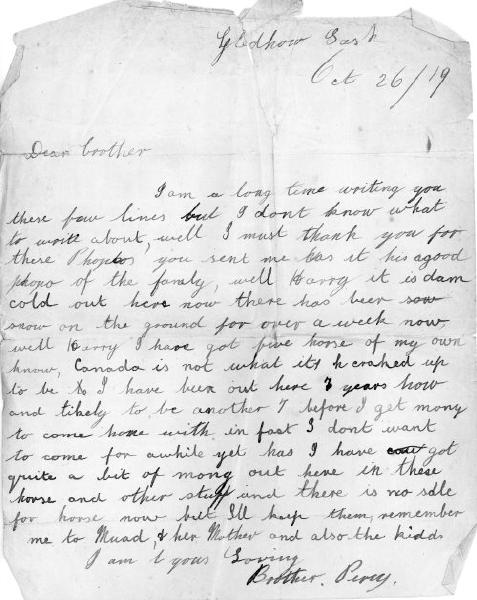 Gledhow Sask
Oct 26/19
Dear brother
I am a long time writing you
these faw lines but I dont know what
to write about, well I must thank you for
these Photos you sent me has it his a good
photo of the family, well Harry it is dam
cold out here now there has been sow
snow on the ground for over a week now,
well Harry I have got five horse of my own
know, Canada is not what its craked up
to be I have been out here 7 years how
and likely to be another 7 before I get mony
to come home with in fast I dont want
to come for awhile yet has I have got
quite a bit of mony out here in these
horse and other stuff and there is no sale
for horse now but Ill keep them, remember
me to Muad, & her Mother and also the kidds
I am yous Loving
Brother. Percy.